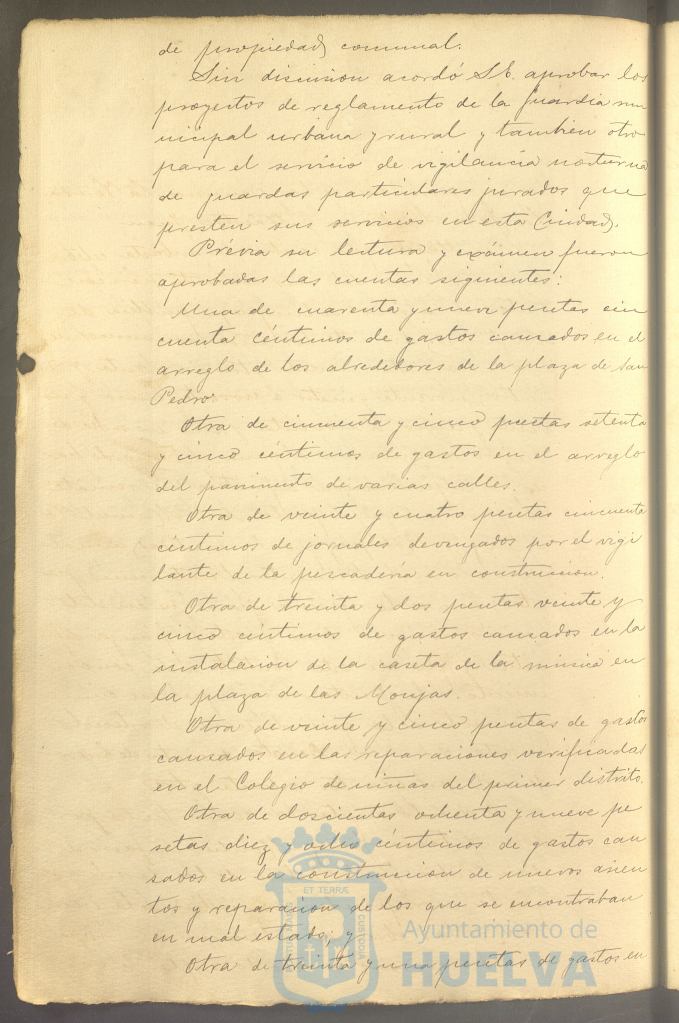 de propiedad comunal.
Sin discusion acordó S.E. aprobar los
proyectos de reglamento de la guardia mu
nicipal urbana y rural y tambien otro
para el servicio de vigilancia nocturna
de guardas particulares jurados que
presten sus servicios en esta Ciudad.
Prévia su lectura y exámen fueron
aprobadas las cuentas siguientes:
Una de cuarenta y nueve pesetas cin
cuenta céntimos de gastos causados en el
arreglo de los alrededores de la plaza de San
Pedro.
Otra de cincuenta y cinco pesetas setenta
y cinco céntimos de gastos en el arreglo
del pavimento de varias calles.
Otra de veinte y cuatro pesetas cincuenta
céntimos de jornales devengados por el vigi
lante de la pescadería en construccion.
Otra de treinta y dos pesetas veinte y
cinco céntimos de gastos causados en la
instalacion de la caseta de la música en
la plaza de las Monjas.
Otra de veinte y cinco pesetas de gastos
causados en las reparaciones verificadas
en el Colegio de niñas del primer distrito.
Otra de doscientas ochenta y nueve pe
setas diez y ocho céntimos de gastos cau
sados en la construccion de nuevos asien
tos y reparacion de los que se encontraban
en mal estado; y
Otra de treinta y una pesetas de gastos en
ET TERRÆ
CUSTODIA
Ayuntamiento de
HUELVA